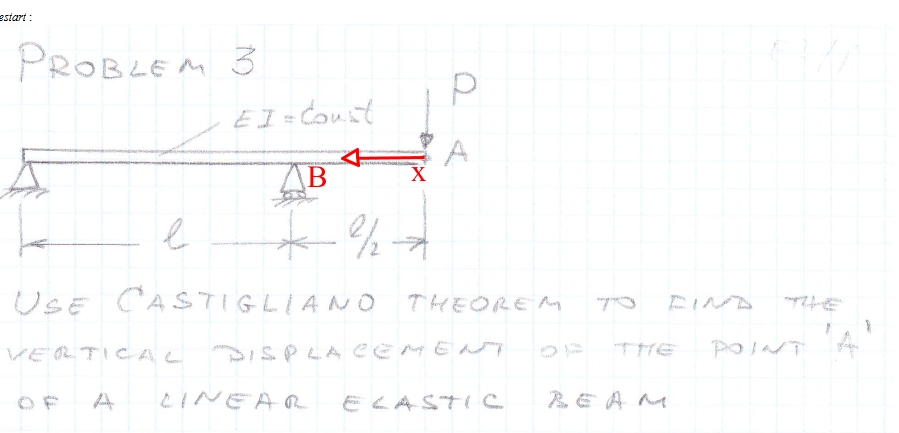 estart :
PROBLEM 3
P
EI = Const
A
B
x
l
l/2
USE CASTIGLIANO THEOREM TO FIND THE
VERTICAL DISPLACEMENT OF THE POINT 'A'
OF A LINEAR ELASTIC BEAM